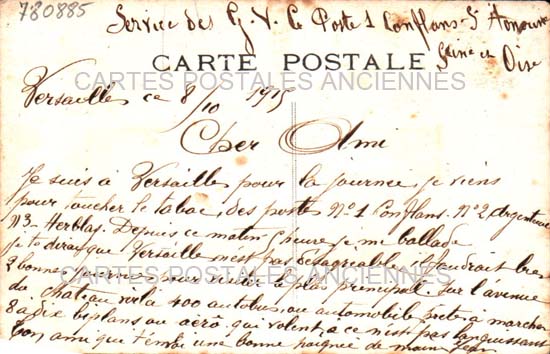 780885
Service des G. V. C. Poste 1 Conflans-St Honorine
Seine et
CARTE POSTALE
Oise
CARTES POSTALES ANCIENNES
Versailles ce 8/10 1915
Cher Ami
Je suis à Versailles pour la journée, je viens
pour toucher le tabac, des postes No 1 Conflans. No 2 Argenteuil
No 3 - Herblas. Depuis ce matin 9 heures je me ballade
je te dirai que Versailles n'est pas désagréable, il faudrait bien
2 bonnes journées pour visiter le plus principall. Sur l'avenue
CARTES POSTALES ANCIENNES
du château voila 400 autobus ou automobile prets à marcher
8 a dix biplans ou aéro, qui volent, a ce n'est pas languissant
bon ami que t'envoi une bonne poignée de main Jean